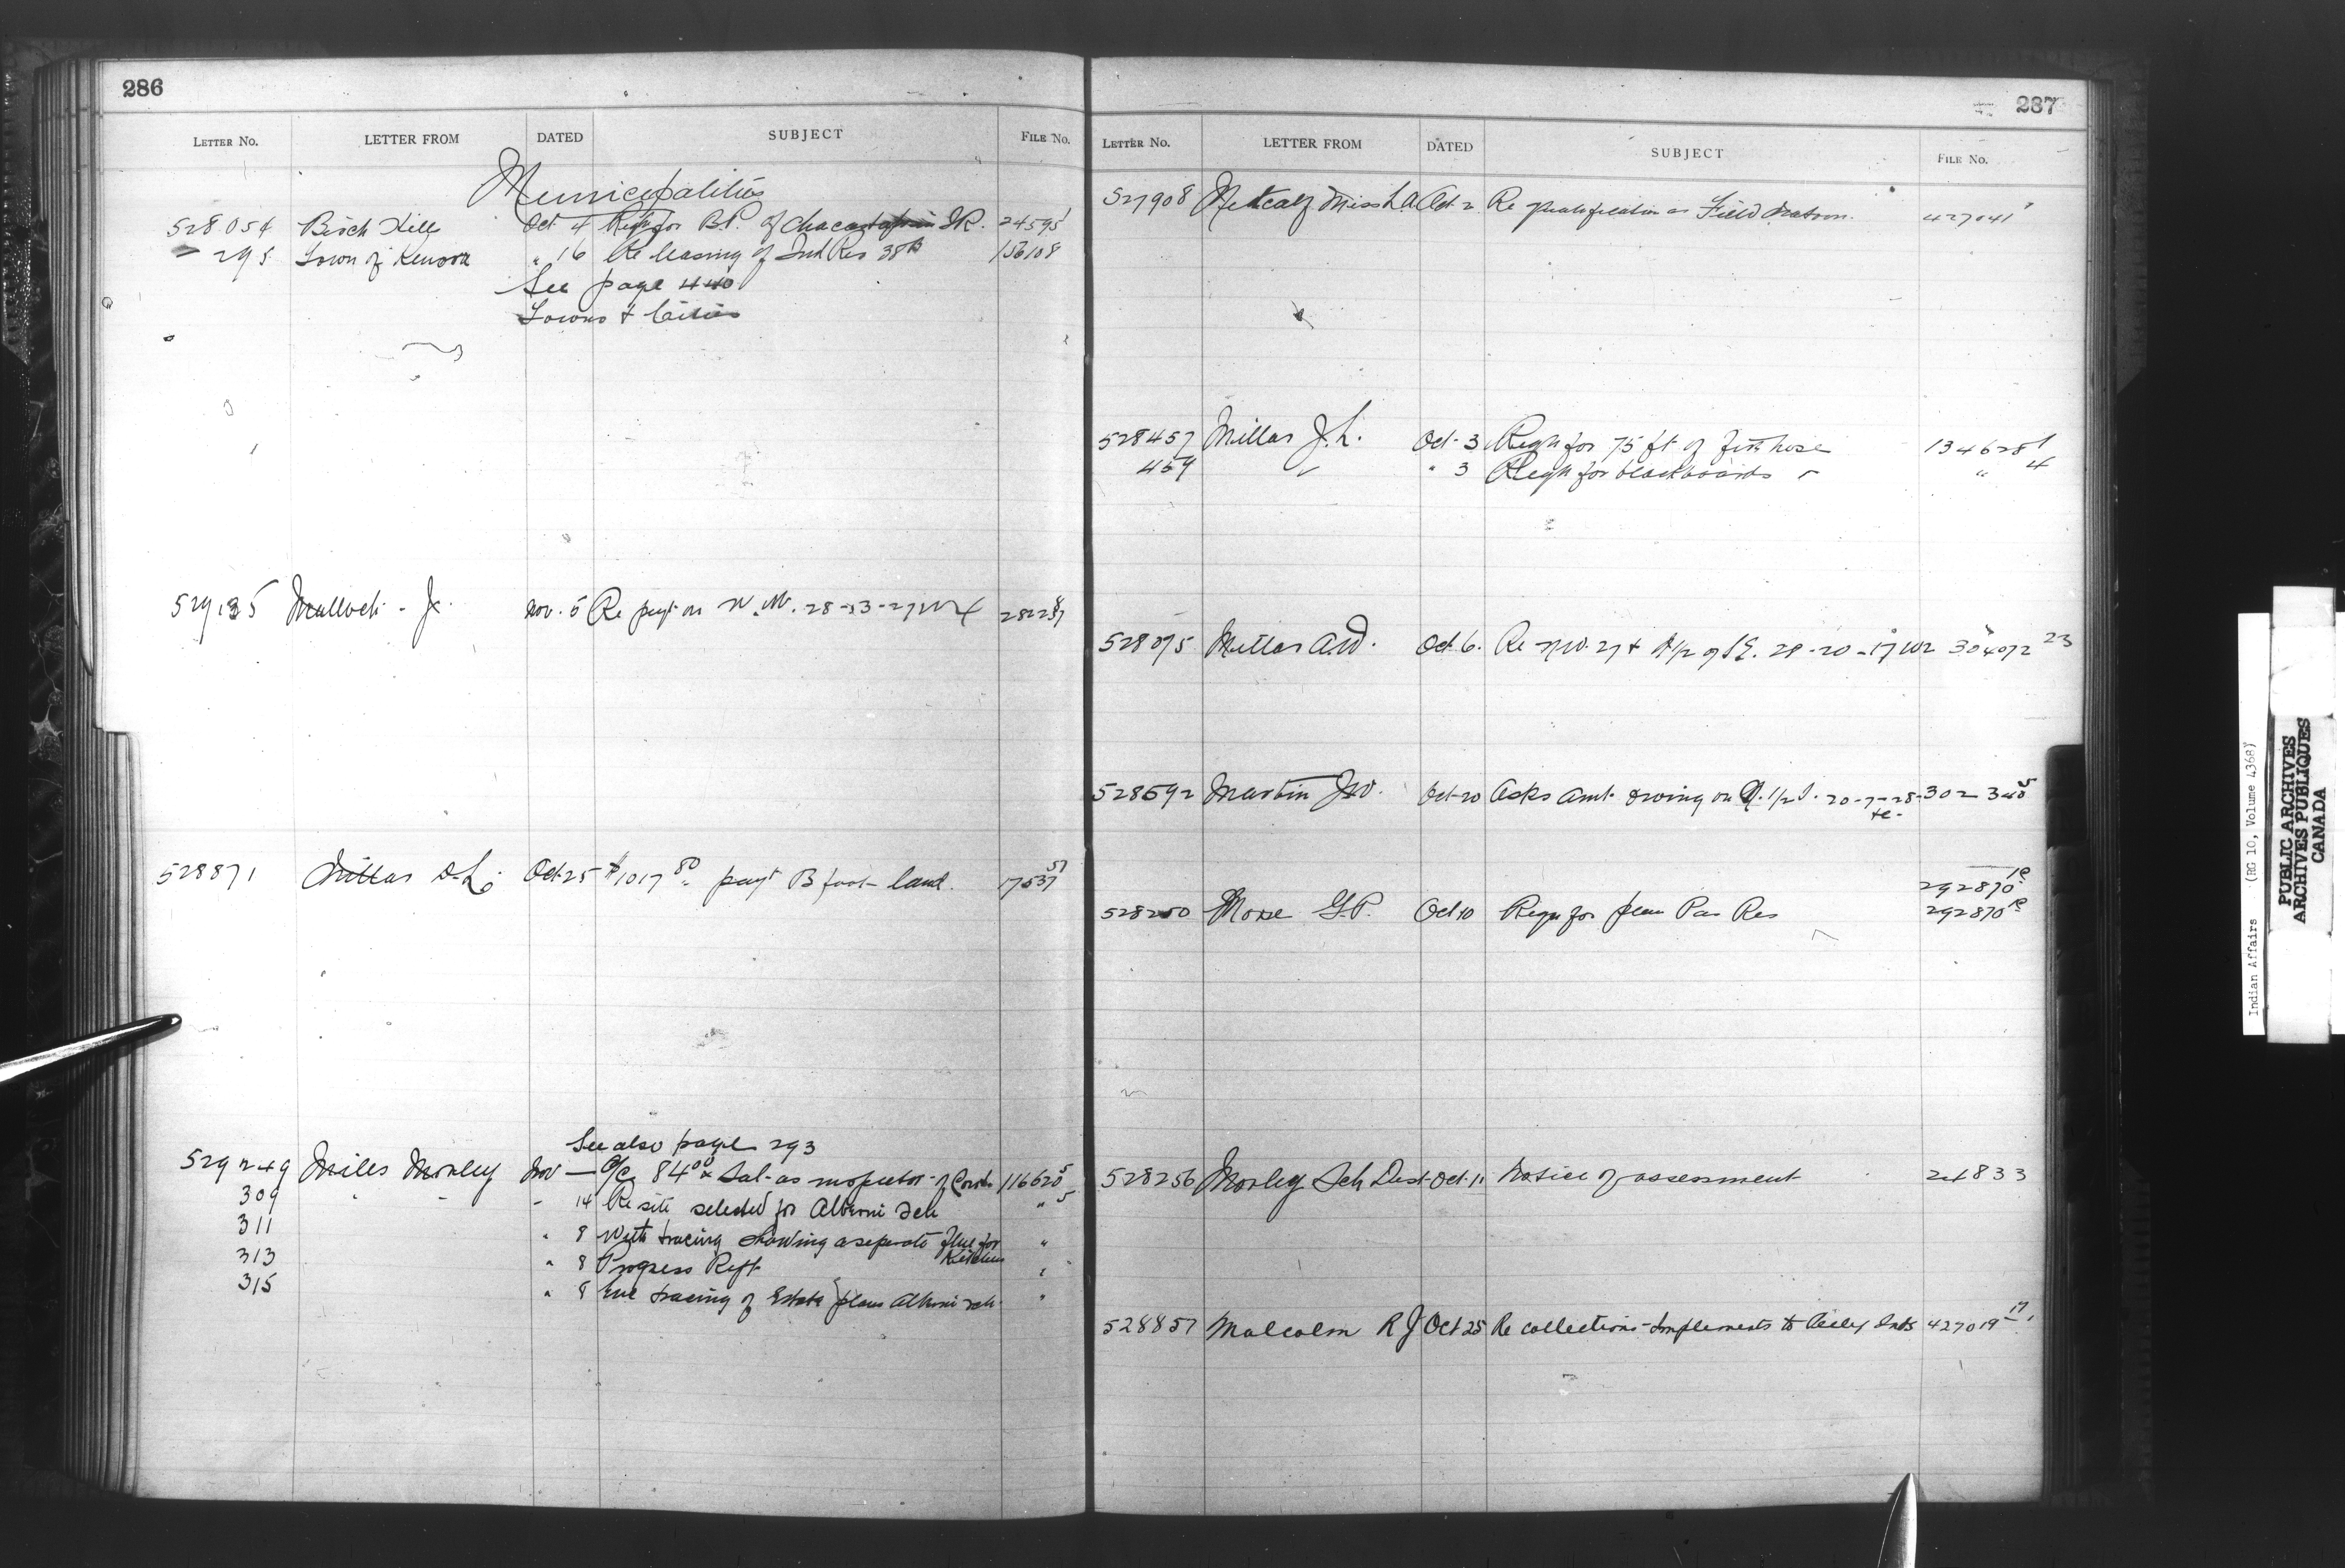 286
LETTER NO. LETTER FROM DATED SUBJECT FILE NO.
Municipalities
528054 Birch Hills Oct 4 Reqn for B.P. of I.R. 24595
295 Town of Kenora " 16 Re leasing of Ind Res 38B 156108
See page 440
Towns & Cities
529135 Malloch - J. Nov. 5 Re payt on 28-13-27
528871 Millar D.L. Oct 25 $1017 80 payt Bfoot land. 17537 57
See also page 293
529249 Miles Morley Nov — a/c 84 00 Sal- as inspector of 116620 5
309 " " - 14 Re site selected for Alberni Sch " 5
311 " 8 With tracing showing a separate flue for Kitchen "
313 " 8 Progress Rept "
315 " 8 Enc tracing of plan Alberni Sch. "
287
LETTER NO. LETTER FROM DATED SUBJECT FILE NO.
527908 Metcalf Miss L.A. Oct 2 Re qualification as Field Matron. 427041
528457 Millar J.L. Oct 3 Reqn for 75 ft of fire hose 134628 1
459 " " 3 Reqn for blackboards " 4
528075 Millar A.W. Oct 6. Re N.W. 27 & N 1/2 of S.E. 28-20-17 W2 304072 23
528592 Martin J.W. Oct 20 Asks amt owing on N. 1/2 20-7-28- 302 340 5
292870 1C
528250 Morse G.P. Oct 10 Reqn for plan Pas Res 292870 1C
528256 Morley Sch Dist Oct 11 Notice of assessment 24833
528857 Malcolm R J Oct 25 Re collections Implements to Inds 427019 17
Indian Affairs (RG 10, Volume 4368)
PUBLIC ARCHIVES
ARCHIVES PUBLIQUES
CANADA